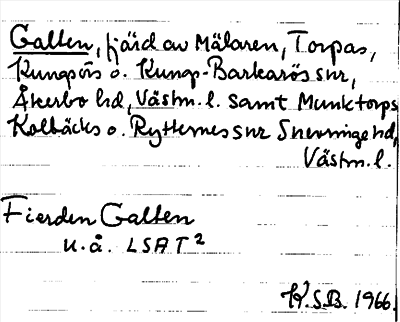 Galten, fjärd av Mälaren, Torpas,
Kungsörs o. Kungs-Barkarös snr,
Åkerbo hd, Västm. l. samt Munktorps
Kolbäcks o. Rytternes snr Snevringe hd,
Västm. l.
Fierden Galten
u.å. LSA T²
K.S.B. 1966.